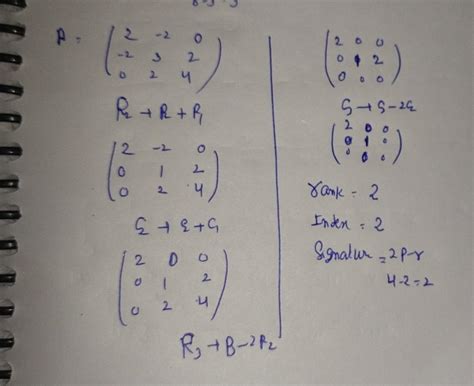 A = ( 2 -2 0
-2 3 2
0 2 4 )
R2 → R2 + R1
( 2 -2 0
0 1 2
0 2 4 )
C2 → C2 + C1
( 2 0 0
0 1 2
0 2 4 )
R3 → R3 - 2R2
( 2 0 0
0 1 2
0 0 0 )
C3 → C3 - 2C2
( 2 0 0
0 1 0
0 0 0 )
rank = 2
Index = 2
Signatur = 2P - r
4 - 2 = 2